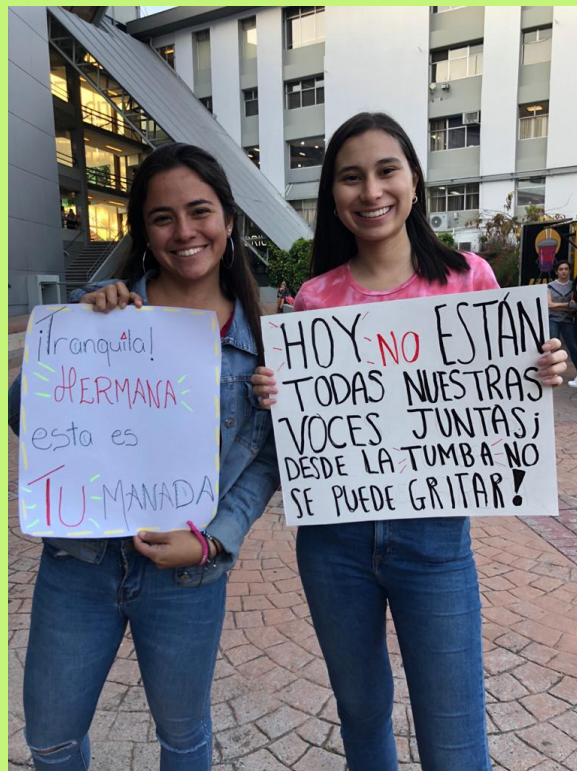 ¡Tranquila!
HERMANA
esta es
TU MANADA
HOY NO ESTÁN
TODAS NUESTRAS
VOCES JUNTAS;
DESDE LA TUMBA NO
SE PUEDE GRITAR!